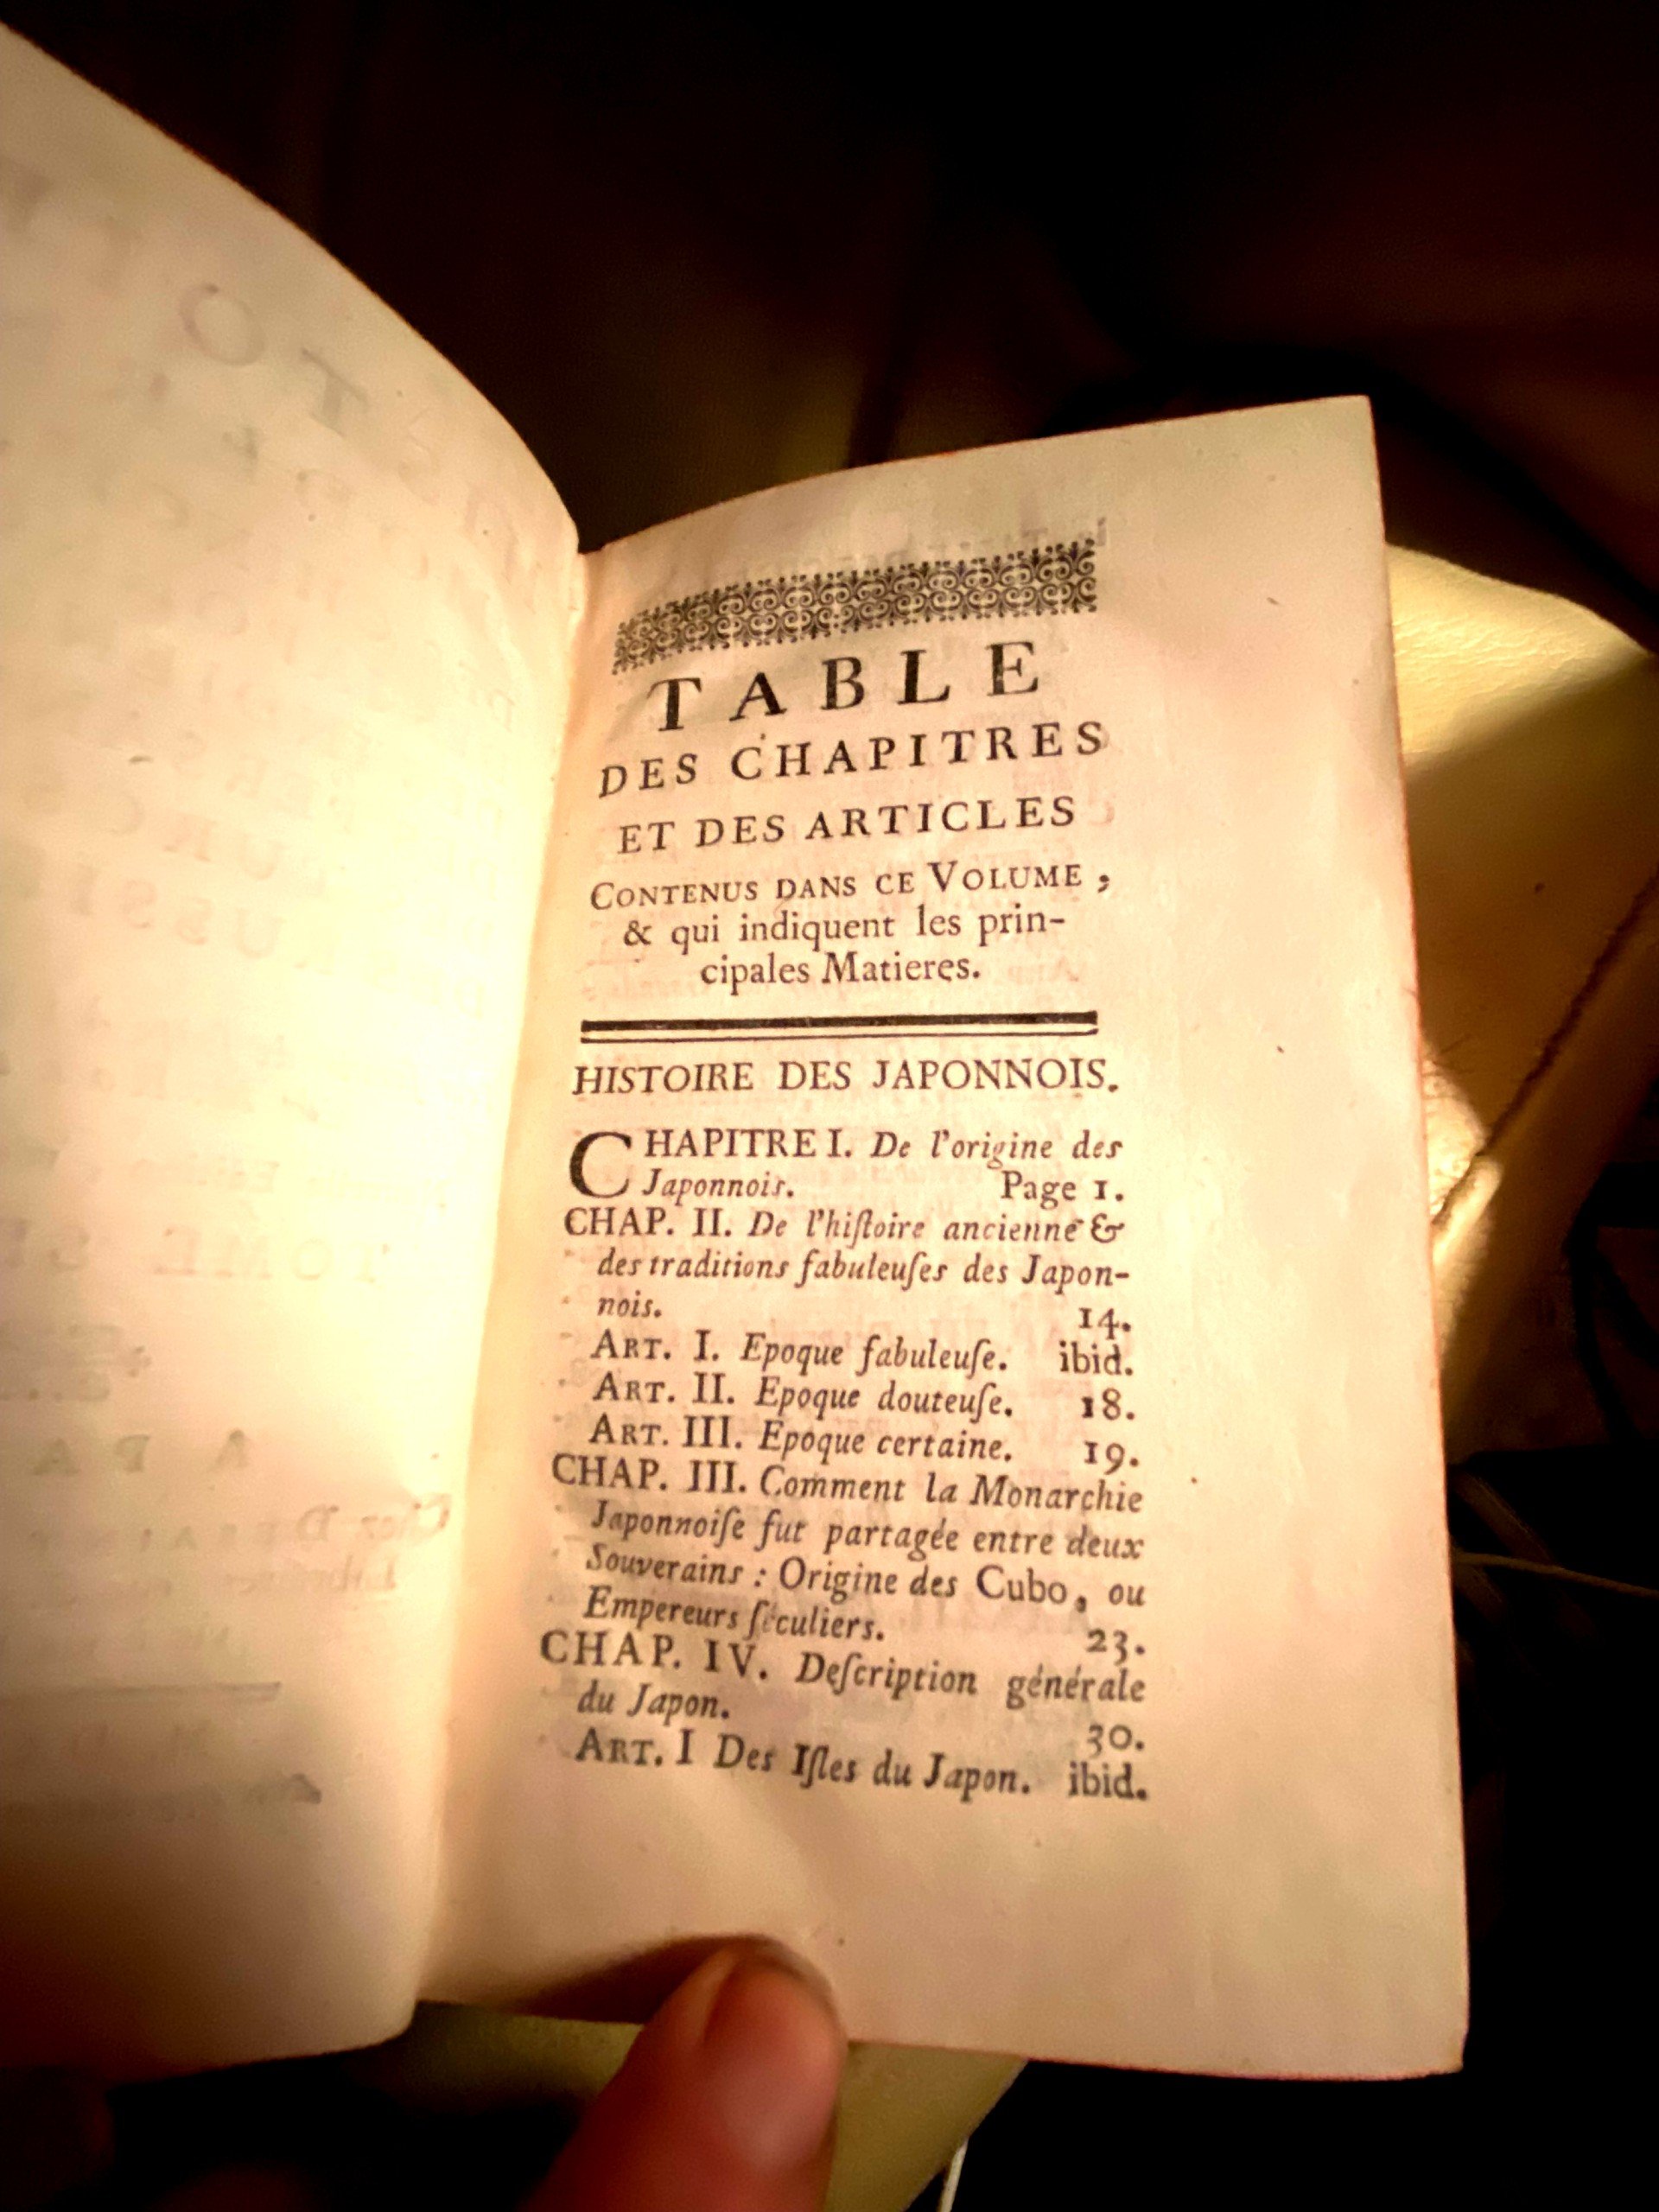 TABLE
DES CHAPITRES
ET DES ARTICLES
CONTENUS DANS CE VOLUME ;
& qui indiquent les prin-
cipales Matieres.
HISTOIRE DES JAPONNOIS.
CHAPITRE I. De l'origine des
Japonnois. Page 1.
CHAP. II. De l'hiſtoire ancienne &
des traditions fabuleuſes des Japon-
nois. 14.
ART. I. Epoque fabuleuſe. ibid.
ART. II. Epoque douteuſe. 18.
ART. III. Epoque certaine. 19.
CHAP. III. Comment la Monarchie
Japonnoiſe fut partagée entre deux
Souverains : Origine des Cubo, ou
Empereurs ſéculiers. 23.
CHAP. IV. Deſcription générale
du Japon. 30.
ART. I Des Iſles du Japon. ibid.